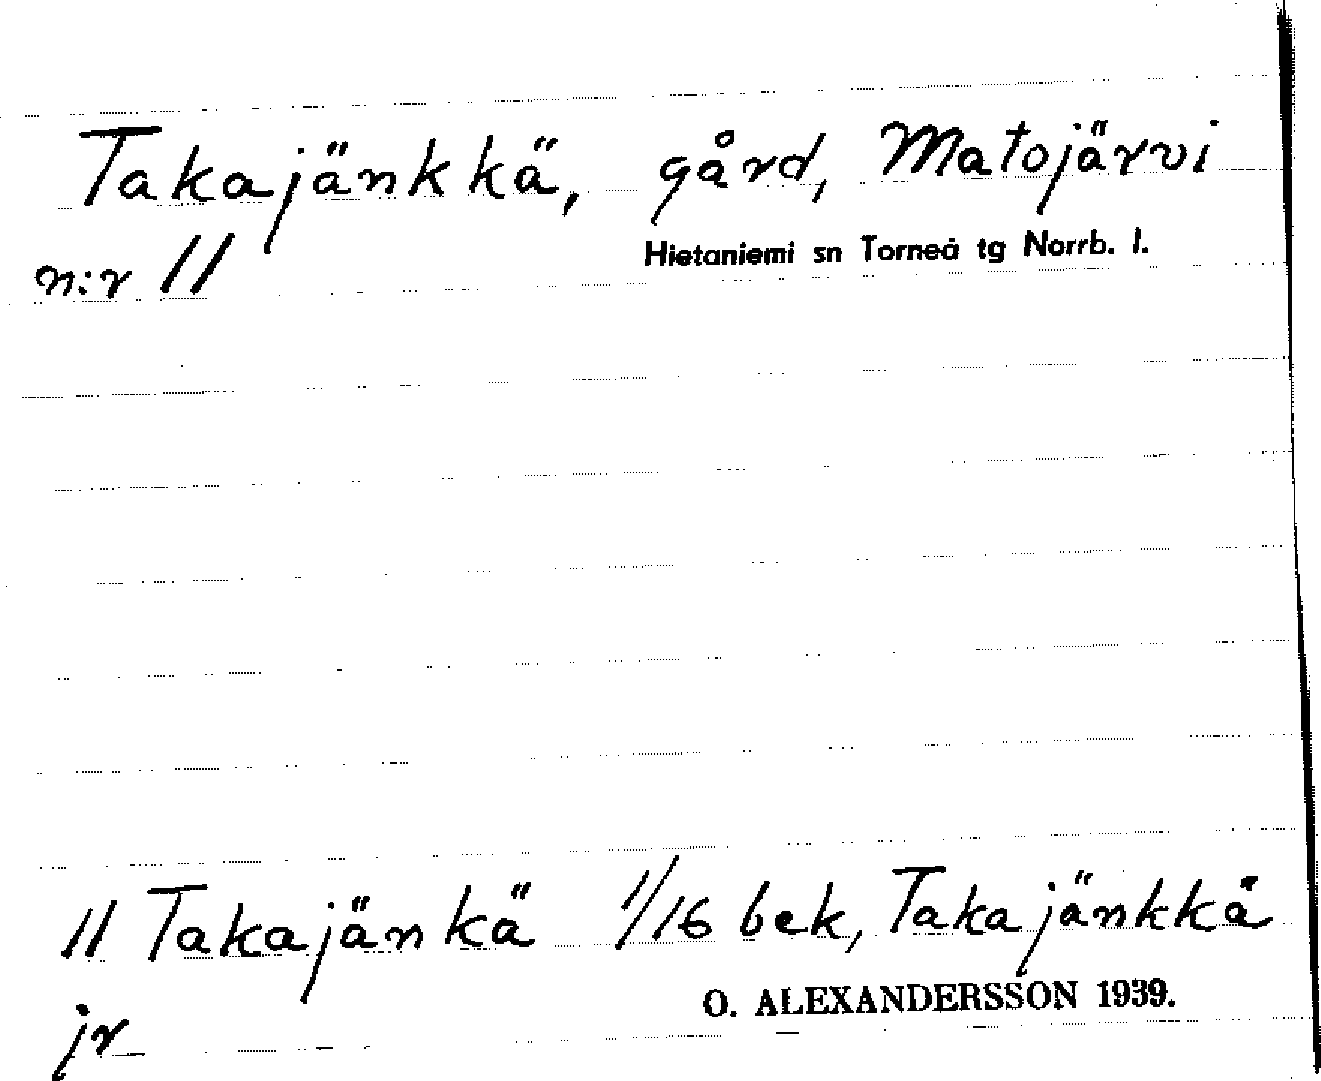 Takajänkkä, gård, Matojärvi
n:r 11 Hietaniemi sn Torneå tg Norrb. l.
11 Takajänkä 1/16 bek, Takajänkkä
jr O. ALEXANDERSSON 1939.